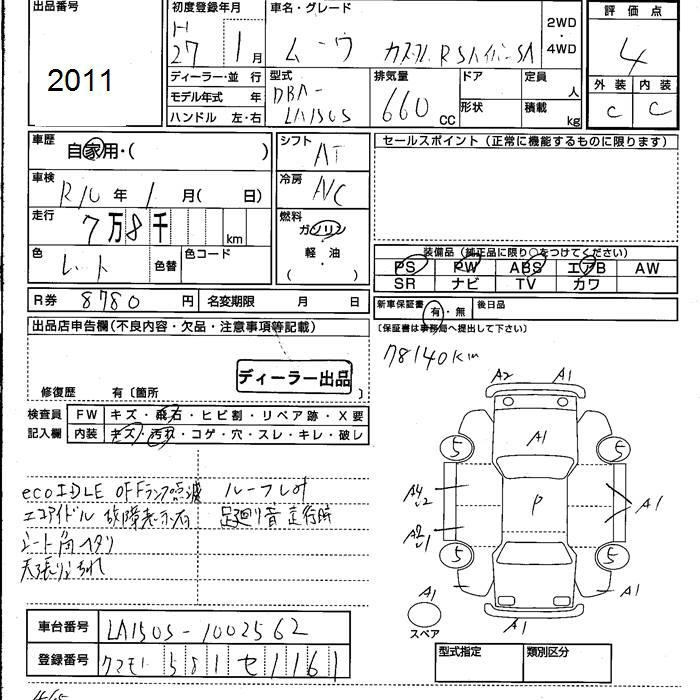 出品番号
2011
初度登録年月
H
27 1月
車名・グレード
ムーヴ カスタムRSハイパーSA
2WD
・
4WD
評価点
4
外装 内装
C C
ディーラー・並行
モデル年式 年
ハンドル 左・右
型式
DBA-
LA150S
排気量
660CC
ドア
定員
人
形状
積載
kg
車歴
自家用・( )
シフト
AT
セールスポイント(正常に機能するものに限ります)
車検
R10年1月( 日)
冷房
A/C
走行
7万8千 km
燃料
ガソリン
軽・油
( ・ )
色
レッド
色替
色コード
装備品(純正品に限り○をつけてください)
PS PW ABS エアB AW
SR ナビ TV カワ
R券 8780円
名変期限 月 日
新車保証書 有・無
後日品
〔保証書は事務局へ提出して下さい〕
出品店申告欄(不良内容・欠品・注意事項等記載)
ディーラー出品
修復歴 有〔箇所 〕
78140km
検査員
記入欄
FW キズ・飛石・ヒビ割・リペア跡・X要
内装 キズ・汚れ・コゲ・穴・スレ・キレ・破レ
ecoIDLE OFFランプ点滅
エコアイドル故障表示有
シート角ヘタリ
天張り汚れ
ルーフレ付
足廻り音 走行時
A2 A1
A1
5 5
P
A1
5 5
A1 A1
A1
スペア
車台番号 LA150S-1002562
登録番号 クマモト 581 セ 1161
型式指定
類別区分